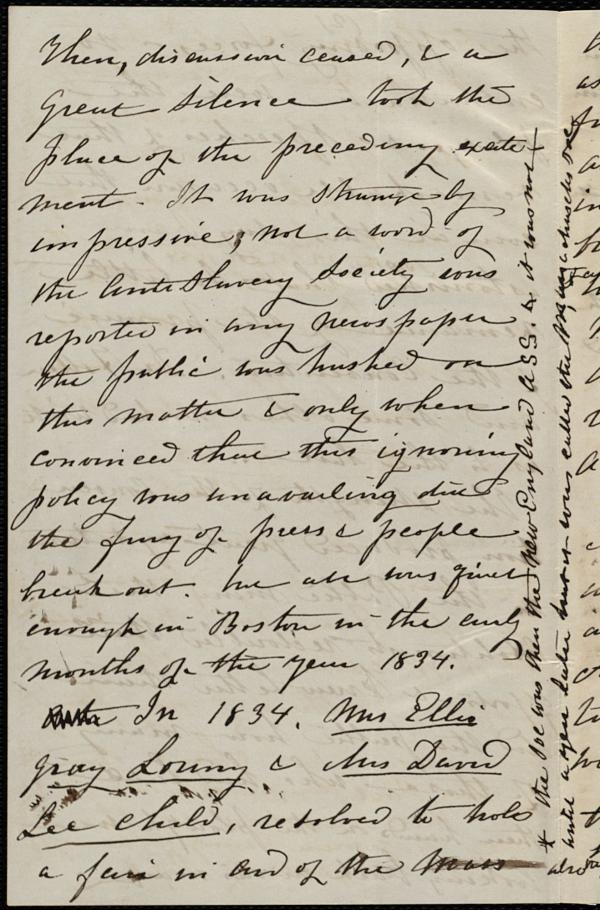 Then, discussion ceased, & a
Great Silence took the
place of the preceding excite-
ment. It was strangely
impressive; not a word of
the Anti Slavery Society was
reported in any newspaper
the public was hushed on
this matter & only when
convinced that this ignoring
policy was unavailing did
the fury of press & people
break out. but all was quiet
enough in Boston in the early
months of the year 1834.
In 1834. Mrs Ellis
Gray Loring & Mrs David
Lee Child, resolved to hold
a fair in aid of the Mass
* the Soc was then the New England A SS. & it was not
until a year later that it was called the Massachusetts Soc
also